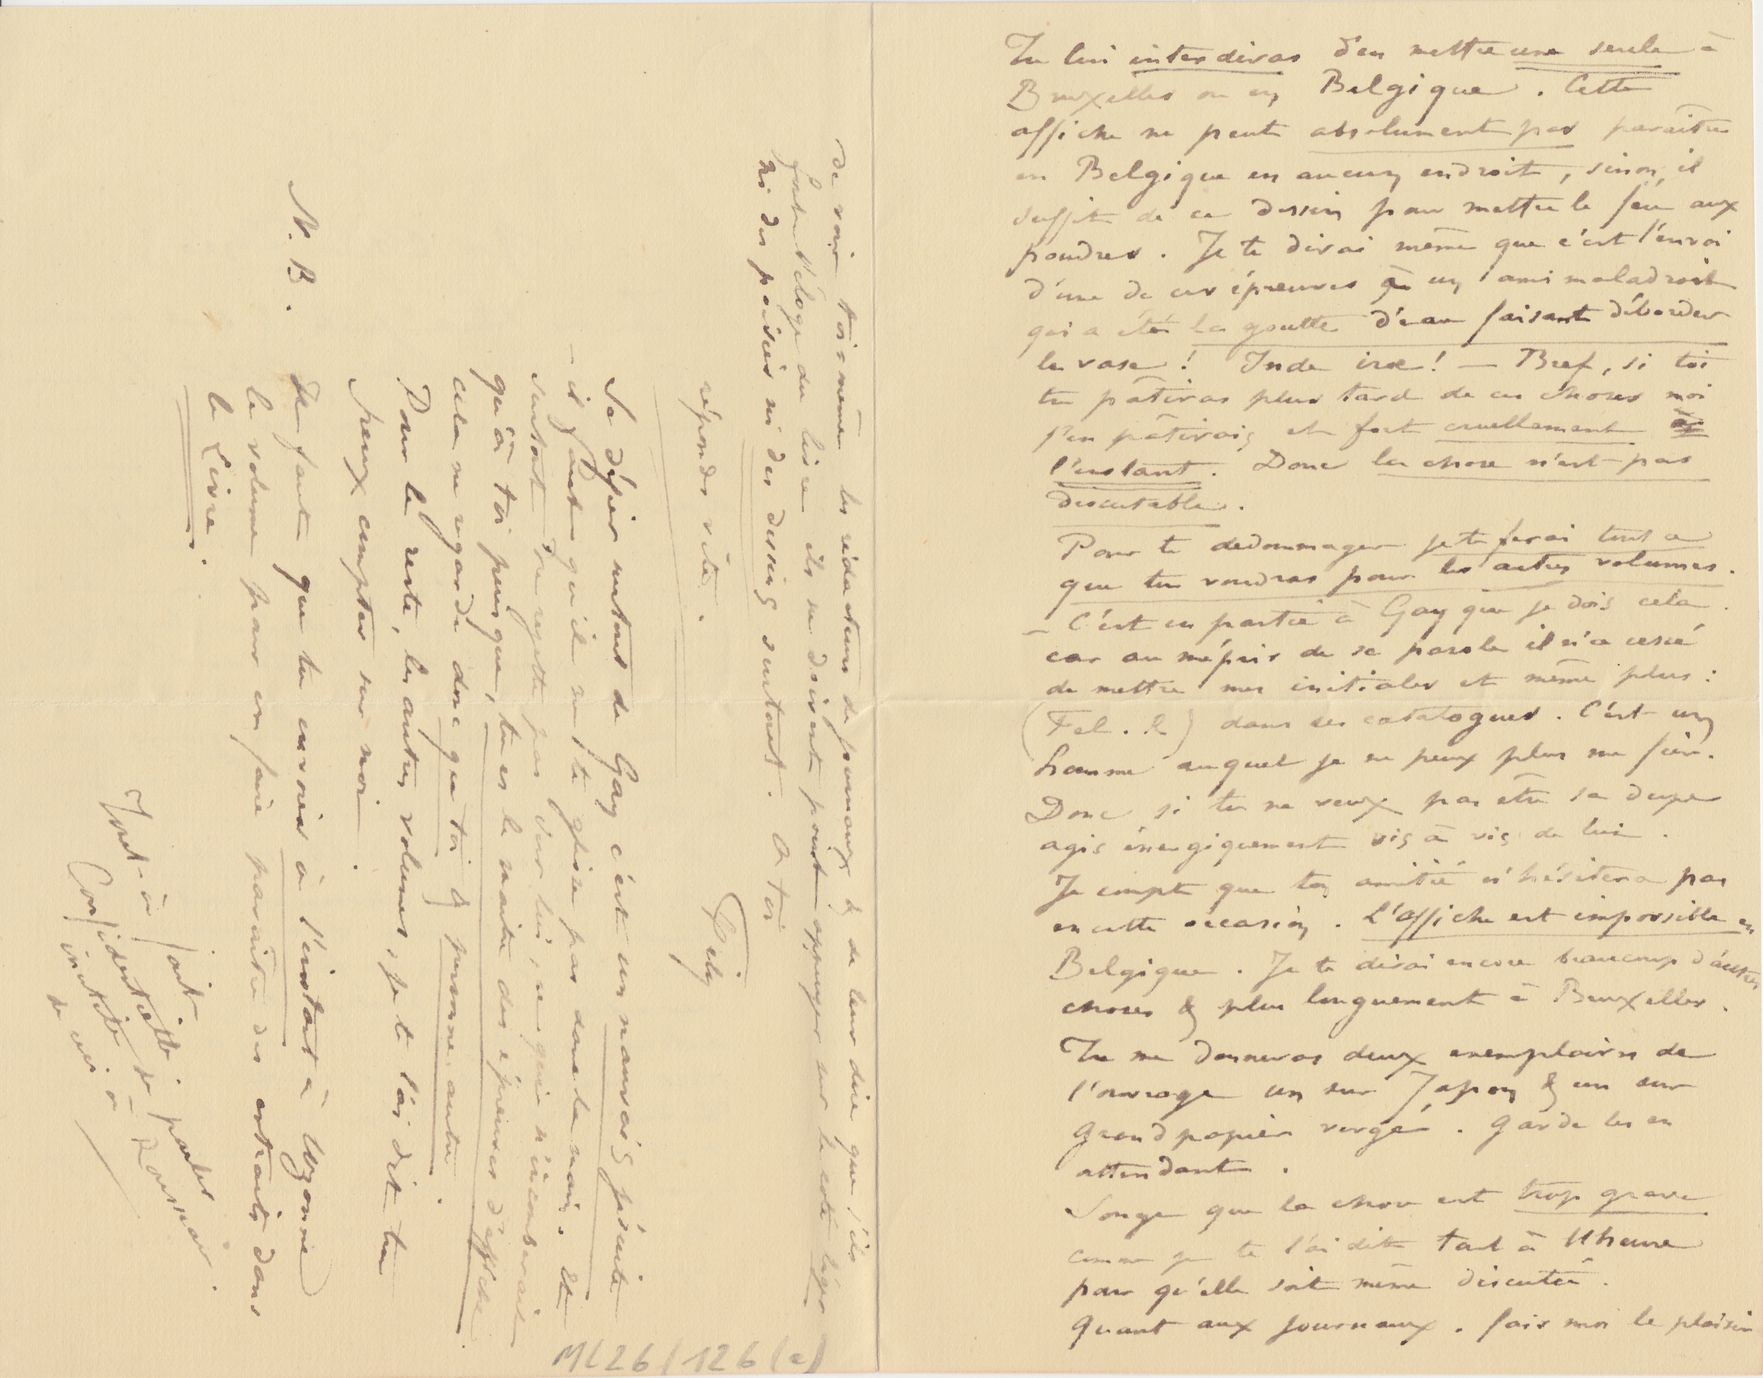 Tu lui interdiras d'en mettre une seule à
Bruxelles ou en Belgique. Cette
affiche ne peut absolument pas paraitre
en Belgique en aucun endroit, sinon, il
suffit de ce dessin pour mettre le feu aux
poudres. Je te dirai même que c'est l'envoi
d'une de ces épreuves à un ami maladroit
qui a été la goutte d'eau faisant déborder
le vase! Inde irae! — Bref, si toi
tu pâtiras plus tard de ces choses moi
j'en pâtirais et fort cruellement
l'instant. Donc la chose n'est pas
discutable.
Pour te dedommager je te ferai tout ce
que tu voudras pour les autres volumes.
— C'est en partie à Gay que je dois cela.
car au mépris de sa parole il n'a cessé
de mettre mes initiales et même plus:
(Fel. R) dans ses catalogues. C'est un
homme auquel je ne peux plus me fier.
Donc si tu ne veux pas être sa dupe
agis énergiquement vis à vis de lui.
Je compte que ton amitié n'hésitera pas
en cette occasion. L'affiche est impossible en
Belgique. Je te dirai encore beaucoup d'autres
choses & plus longuement à Bruxelles.
Tu me donneras deux exemplaires de
l'ouvrage un sur Japon & un sur
Grand papier vergé. Garde les en
attendant.
Songe que la chose est trop grave
comme je te l'ai dit tout à l'heure
pour qu'elle soit même discutée.
Quant aux journaux. fais moi le plaisir
de voir toi-même les rédacteurs de journaux & de leur dire que s'ils
font l'éloge du livre ils ne doivent point appuyer sur le coté léger
ni des poésies ni des dessins surtout. à toi
réponds vite.
Fély
Se défier surtout de Gay c'est un mauvais jésuite
— il faut qu'il ne te glisse pas dans la main. Et
surtout ne rejette pas sur lui, ce qui n'incomberait
qu'à toi puisque, tu es le maitre des épreuves d'affiche.
cela ne regarde donc que toi & personne autre.
Pour le reste, les autres volumes, je te l'ai dit tu
peux compter sur moi.
N.B. Il faut que tu envoies à l'instant à Uzanne
le volume pour en faire paraître des extraits dans
le Livre.
Tout-à-fait
Confidentielle
inutile de parler
de ceci à